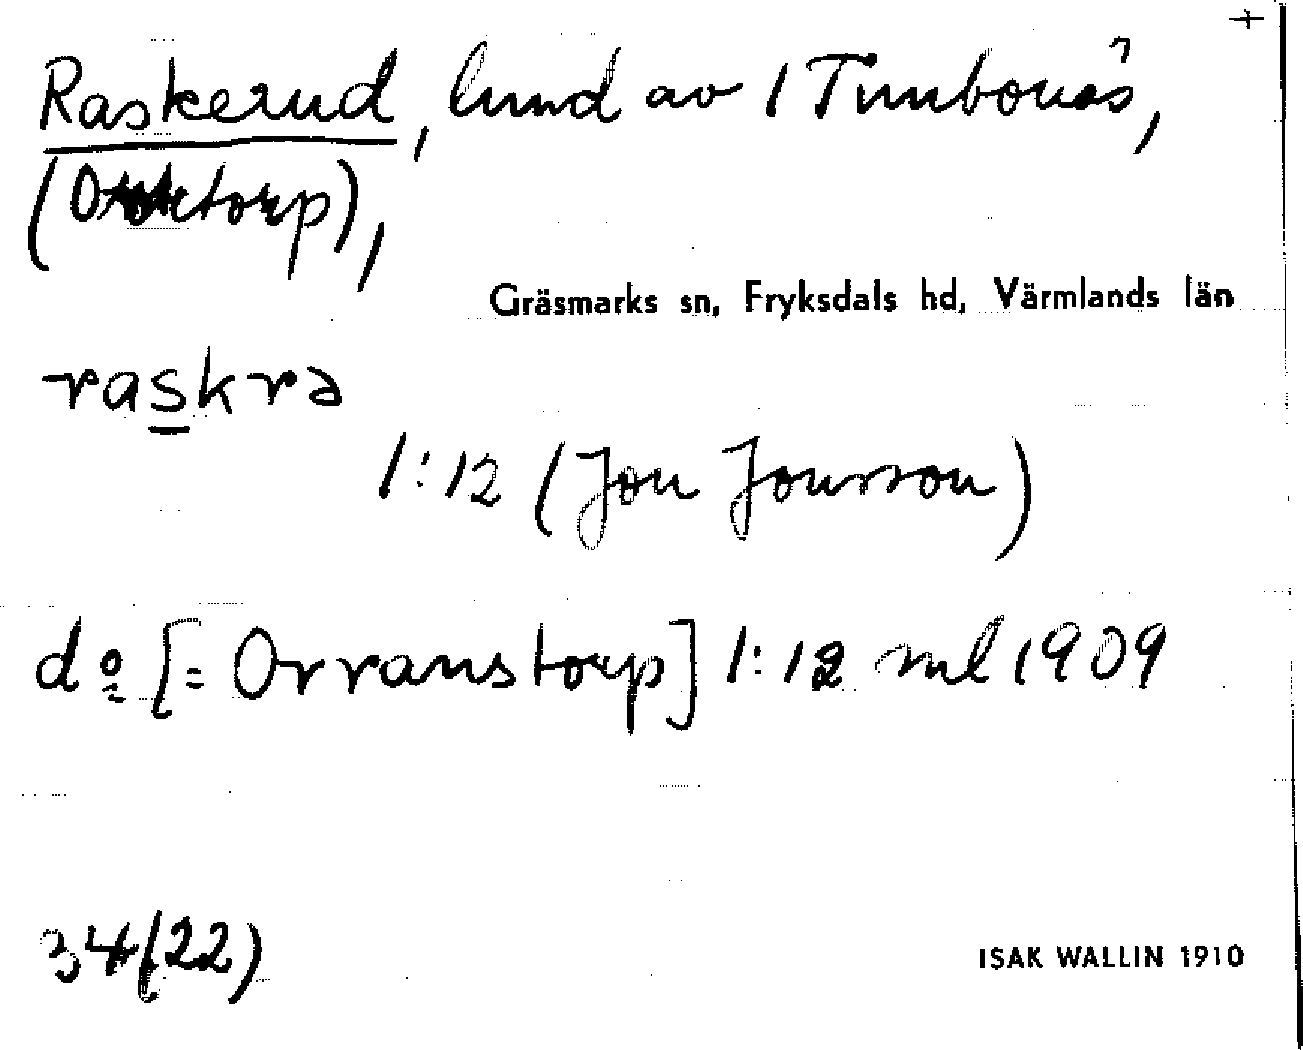 +
Raskerud, lund av 1 Timbonäs,
Gräsmarks sn, Fryksdals hd, Värmlands län
raskrə
1:12 (Jon Jonsson)
do [= Orranstorp] 1:12 ml 1909
34 (22)
ISAK WALLIN 1910